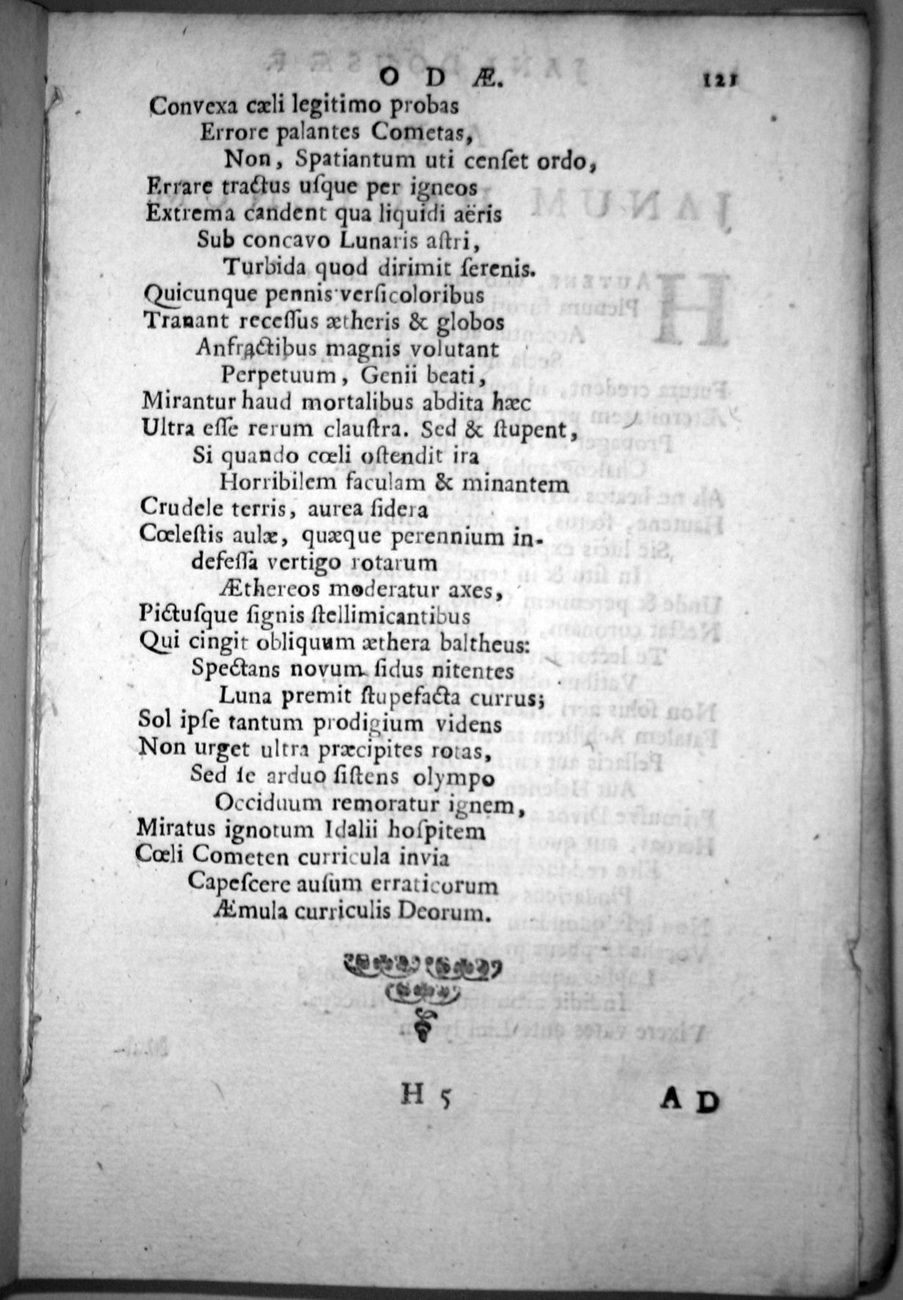 ODÆ. 121
Convexa cæli legitimo probas
Errore palantes Cometas,
Non, Spatiantum uti cenſet ordo,
Errare tractus uſque per igneos
Extrema candent qua liquidi aëris
Sub concavo Lunaris aſtri,
Turbida quod dirimit ſerenis.
Quicunque pennis verſicoloribus
Tranant receſſus ætheris & globos
Anfractibus magnis volutant
Perpetuum, Genii beati,
Mirantur haud mortalibus abdita hæc
Ultra eſſe rerum clauſtra. Sed & ſtupent,
Si quando cœli oſtendit ira
Horribilem faculam & minantem
Crudele terris, aurea ſidera
Cœleſtis aulæ, quæque perennium in-
defeſſa vertigo rotarum
Æthereos moderatur axes,
Pictuſque ſignis ſtellimicantibus
Qui cingit obliquum æthera baltheus:
Spectans novum ſidus nitentes
Luna premit ſtupefacta currus;
Sol ipſe tantum prodigium videns
Non urget ultra præcipites rotas,
Sed ſe arduo ſiſtens olympo
Occiduum remoratur ignem,
Miratus ignotum Idalii hoſpitem
Cœli Cometen curricula invia
Capeſcere auſum erraticorum
Æmula curriculis Deorum.
H 5 AD